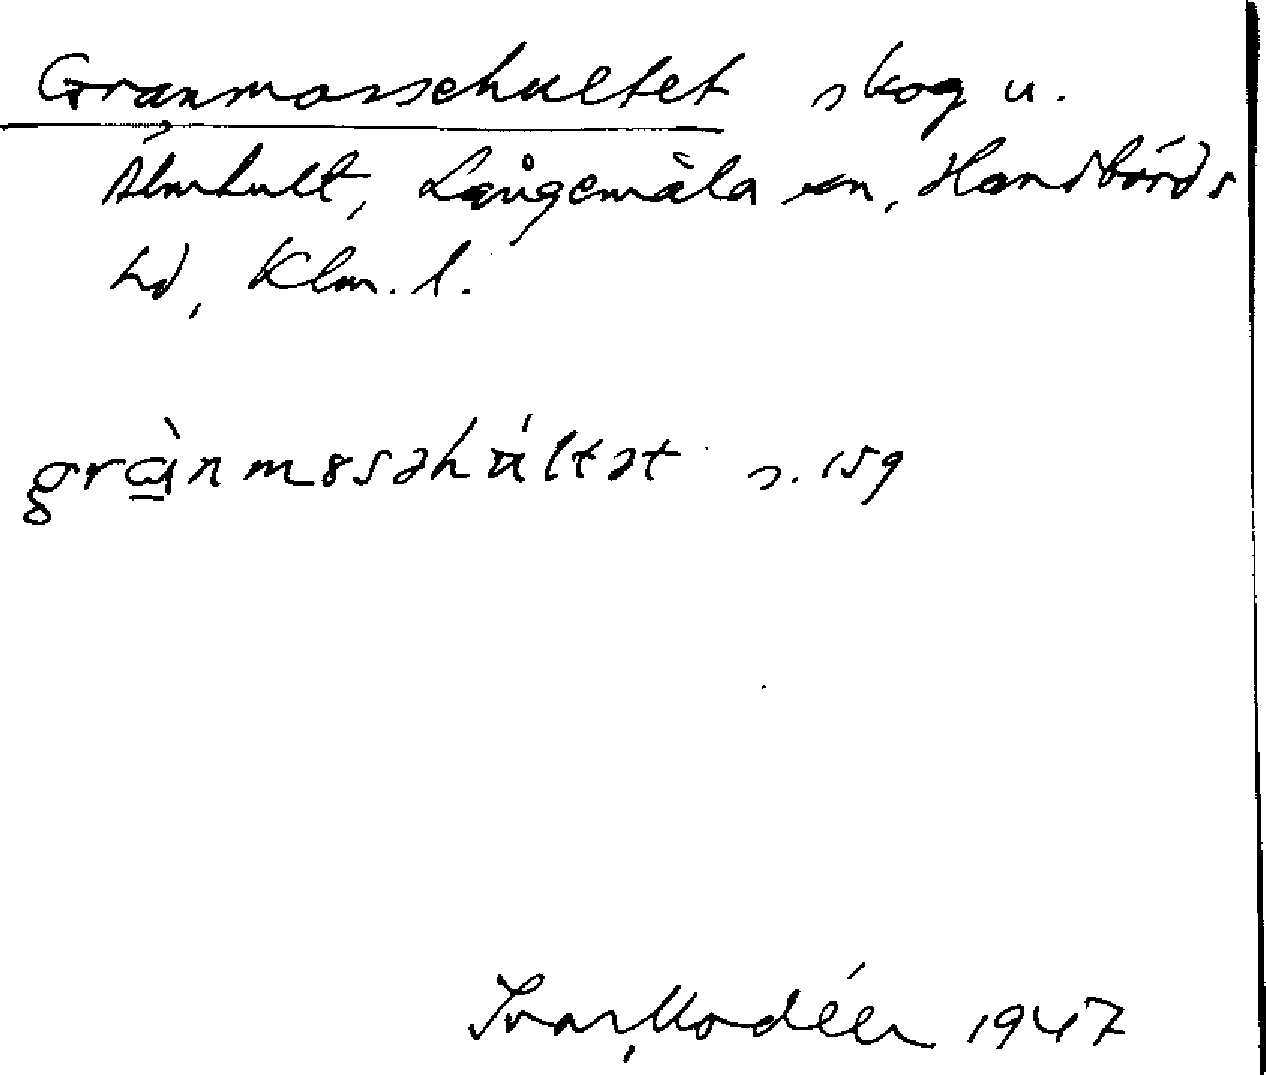 Granmossehultet skog u.
Älmhult, Långemåla sn, Handbörds
hd, Klm. l.
grànmosəhúltət s. 159
Ivar Modéer 1947